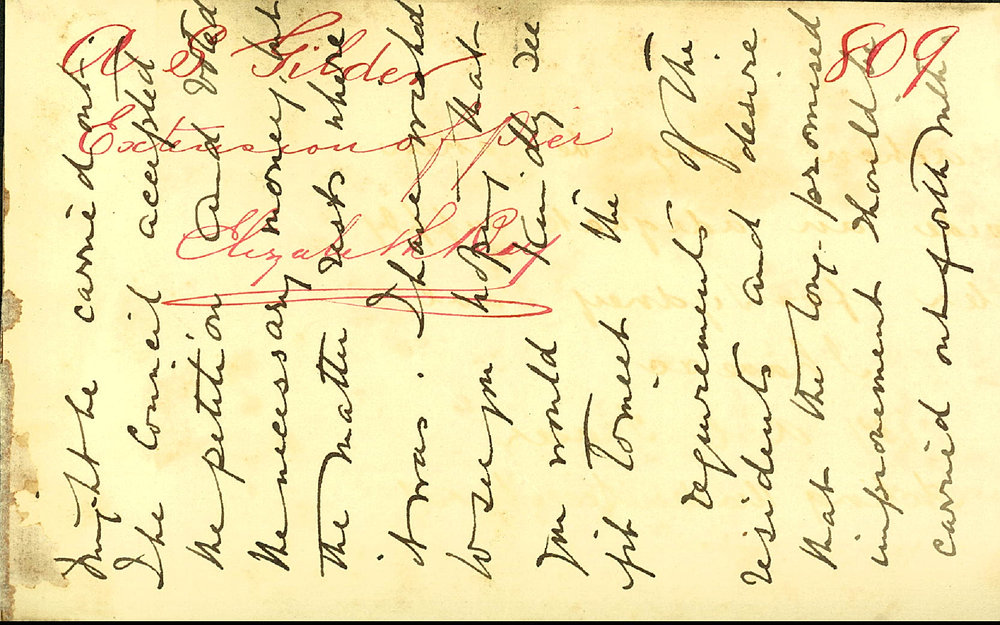 might be carried out.
The Council accepted
the petition and voted
the necessary money but
the matter rests where
it was. I have wished
to see you hoping that
you would kindly see
fit to meet the
requirements of the
residents and desire
that the long-promised
improvement should be
carried out forthwith.
809
Extension of pier
Elizabeth Bay